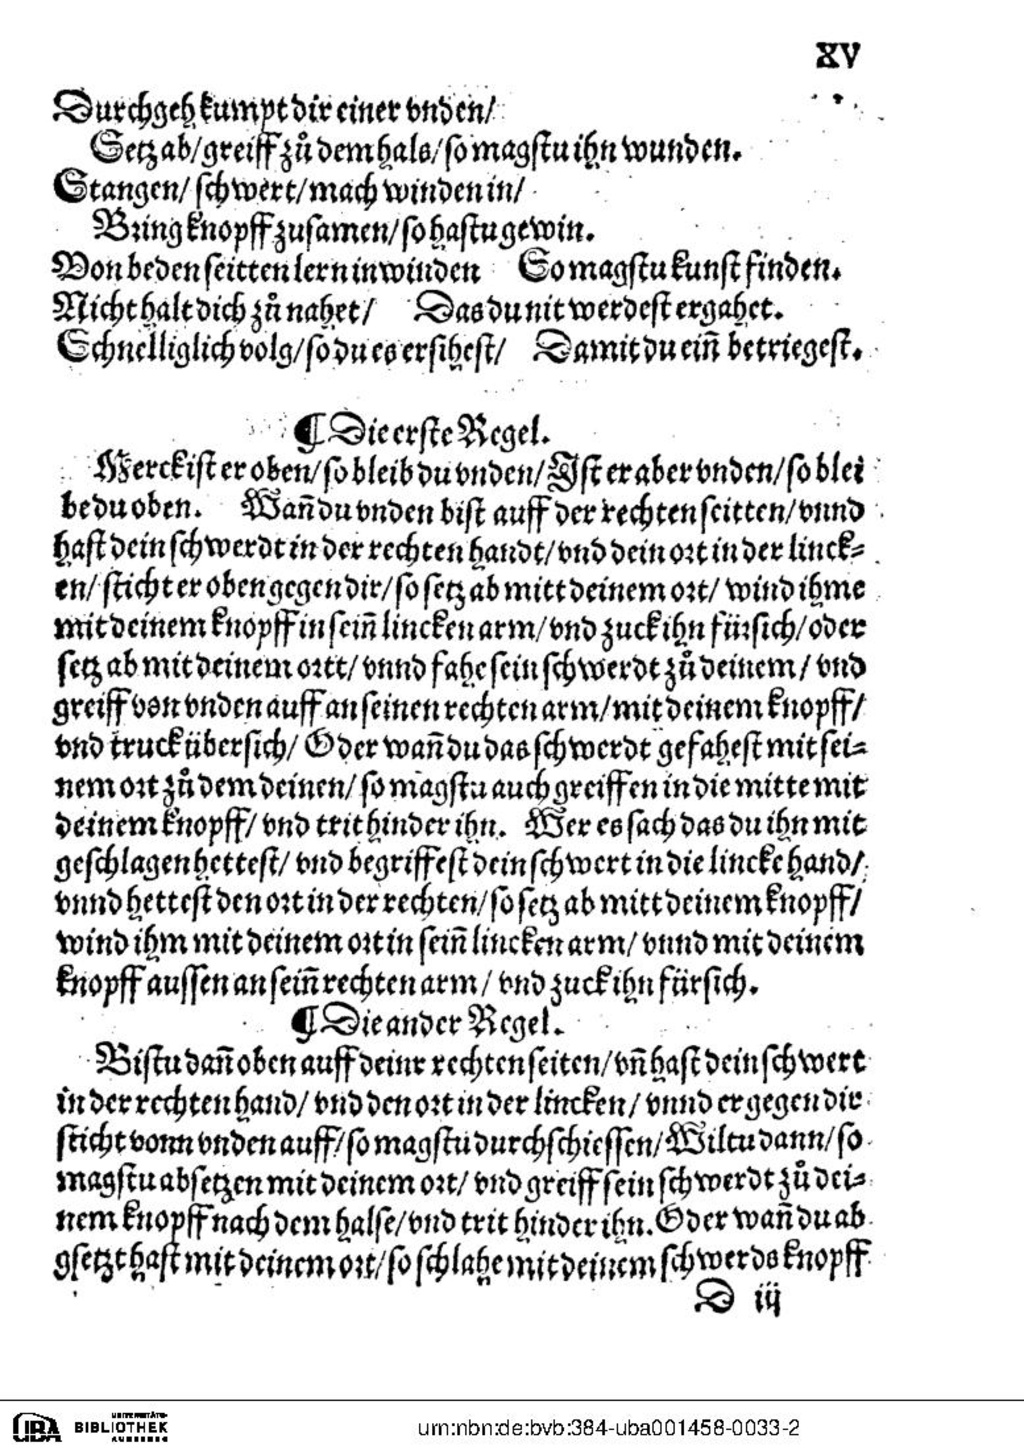 XV
Durchgeh kumpt dir einer vnden/
Setz ab/ greiff zů dem hals/ so magstu ihn wunden.
Stangen/ schwert/ mach winden in/
Bring knopff zusamen/ so hastu gewin.
Von beden seitten lern inwinden So magstu kunst finden.
Nicht halt dich zů nahet/ Das du nit werdest ergahet.
Schnelliglich volg/ so du es ersihest/ Damit du ein̄ betriegest.
¶ Die erste Regel.
Merck ist er oben/ so bleib du vnden/ Ist er aber vnden/ so blei
be du oben. Wan̄ du vnden bist auff der rechten seitten/ vnnd
hast dein schwerdt in der rechten handt/ vnd dein ort in der linck⸗
en/ sticht er oben gegen dir/ so setz ab mitt deinem ort/ wind ihme
mit deinem knopff in sein̄ lincken arm/ vnd zuck ihn fürsich/ oder
setz ab mit deinem ortt/ vnnd fahe sein schwerdt zů deinem/ vnd
greiff von vnden auff an seinen rechten arm/ mit deinem knopff/
vnd truck übersich/ Oder wan̄ du das schwerdt gefahest mit sei⸗
nem ort zů dem deinen/ so magstu auch greiffen in die mitte mit
deinem knopff/ vnd trit hinder ihn. Wer es sach das du ihn mit
geschlagen hettest/ vnd begriffest dein schwert in die lincke hand/
vnnd hettest den ort in der rechten/ so setz ab mitt deinem knopff/
wind ihm mit deinem ort in sein̄ lincken arm/ vnnd mit deinem
knopff aussen an sein̄ rechten arm/ vnd zuck ihn fürsich.
¶ Die ander Regel.
Bistu dan̄ oben auff deinr rechten seiten/ vn̄ hast dein schwert
in der rechten hand/ vnd den ort in der lincken/ vnnd er gegen dir
sticht vonn vnden auff/ so magstu durchschiessen/ Wiltu dann/ so
magstu absetzen mit deinem ort/ vnd greiff sein schwerdt zů dei⸗
nem knopff nach dem halse/ vnd trit hinder ihn. Oder wan̄ du ab
gsetzt hast mit deinem ort/ so schlahe mit deinem schwerds knopff
D iij
UBA UNIVERSITÄTS-
BIBLIOTHEK
AUGSBURG
urn:nbn:de:bvb:384-uba001458-0033-2